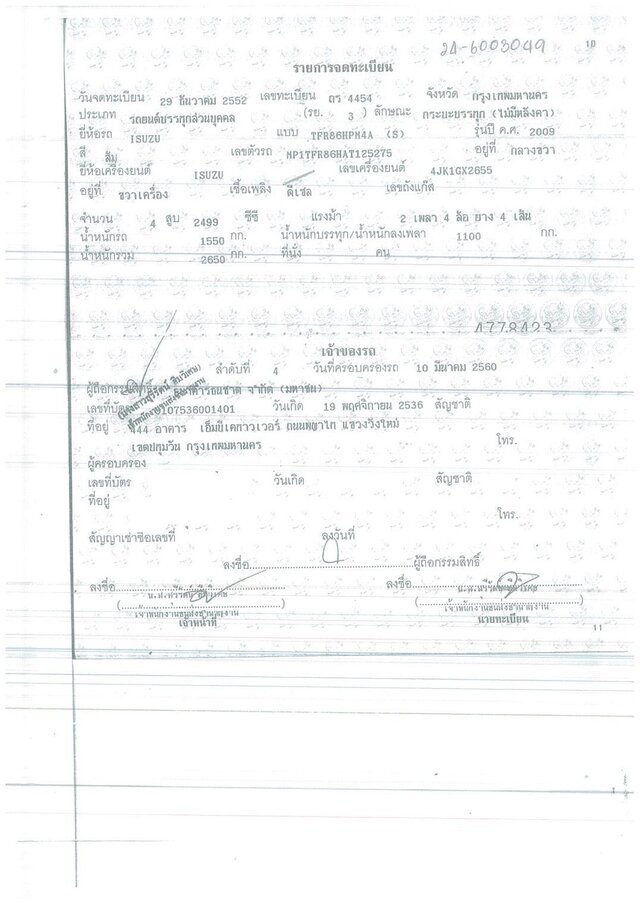 2A-6003049 10
รายการจดทะเบียน
วันจดทะเบียน 29 ธันวาคม 2552 เลขทะเบียน ถร 4454 จังหวัด กรุงเทพมหานคร
ประเภท รถยนต์บรรทุกส่วนบุคคล (รย. 3 ) ลักษณะ กระบะบรรทุก (ไม่มีหลังคา)
ยี่ห้อรถ ISUZU แบบ TFR86HPM4A (S) รุ่นปี ค.ศ. 2009
สี ส้ม เลขตัวรถ MP1TFR86HAT125275 อยู่ที่ กลางขวา
ยี่ห้อเครื่องยนต์ ISUZU เลขเครื่องยนต์ 4JK1GX2655
อยู่ที่ ขวาเครื่อง เชื้อเพลิง ดีเซล เลขถังแก๊ส
จำนวน 4 สูบ 2499 ซีซี แรงม้า 2 เพลา 4 ล้อ ยาง 4 เส้น
น้ำหนักรถ 1550 กก. น้ำหนักบรรทุก/น้ำหนักลงเพลา 1100 กก.
น้ำหนักรวม 2650 กก. ที่นั่ง คน
4778423
เจ้าของรถ
ลำดับที่ 4 วันที่ครอบครองรถ 10 มีนาคม 2560
ผู้ถือกรรมสิทธิ์ ธนาคารธนชาต จำกัด (มหาชน)
เลขที่บัตร 107536001401 วันเกิด 19 พฤศจิกายน 2536 สัญชาติ
ที่อยู่ 444 อาคาร เอ็มบีเคทาวเวอร์ ถนนพญาไท แขวงวังใหม่
เขตปทุมวัน กรุงเทพมหานคร โทร.
ผู้ครอบครอง
เลขที่บัตร วันเกิด สัญชาติ
ที่อยู่
โทร.
สัญญาเช่าซื้อเลขที่ ลงวันที่
ลงชื่อ ผู้ถือกรรมสิทธิ์
ลงชื่อ ลงชื่อ
เจ้าพนักงานขนส่งชำนาญงาน เจ้าพนักงานขนส่งชำนาญงาน
เจ้าหน้าที่ นายทะเบียน
11